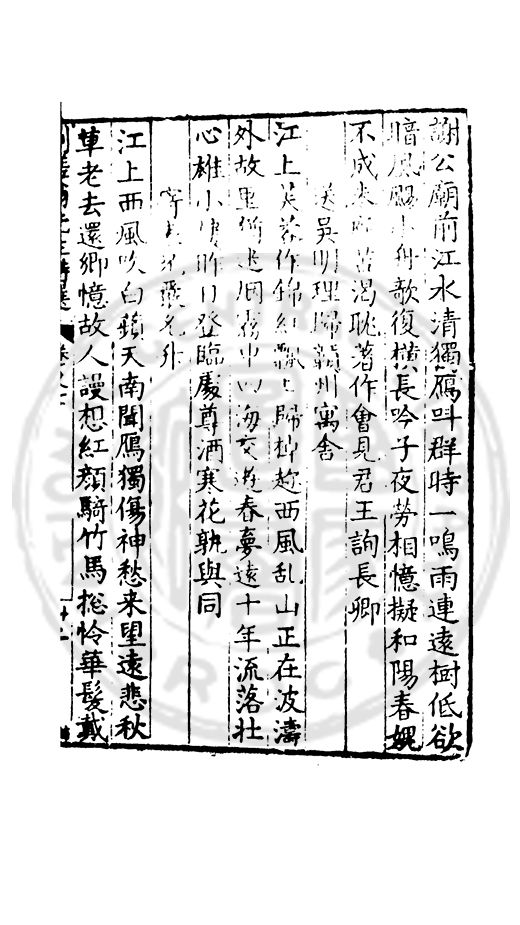 謝公廟前江水清獨鴈呌群時一鳴雨連遠樹低欲
暗風颺小舟歌復橫長吟子夜勞相憶擬和陽春媿
不成未苦渴耽著作會見君王詢長卿
送吳明理歸霸州寓舍
江上芙蓉作錦紅飄飄歸棹趂西風乱山正在波濤
外故里猶迷烟霧中四海交遊春夢遠十年流落壯
心雄小樓昨日登臨處尊酒寒花孰與同
寄
江上西風吹白蘋天南聞鴈獨傷神愁来望遠悲秋
草老去還鄉憶故人謾想紅顏騎竹馬揔怜華髮戴